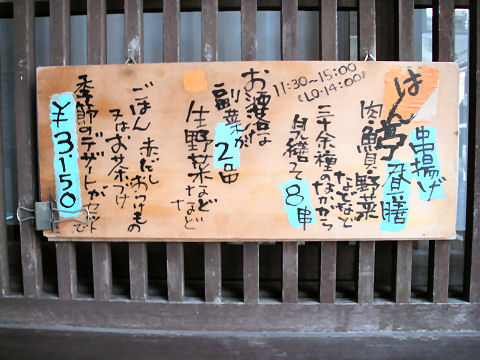 串揚げ
はん亭 昼膳
肉・鰻貝・野菜
などなど
三十余種のなかから
見繕って8串
11:30~15:00
(LO.14:00)
お酒落な
副菜が2品
生野菜など
など
ごはん みそだし おつけもの
又はお茶づけ
季節のデザートがセットで
¥3,150